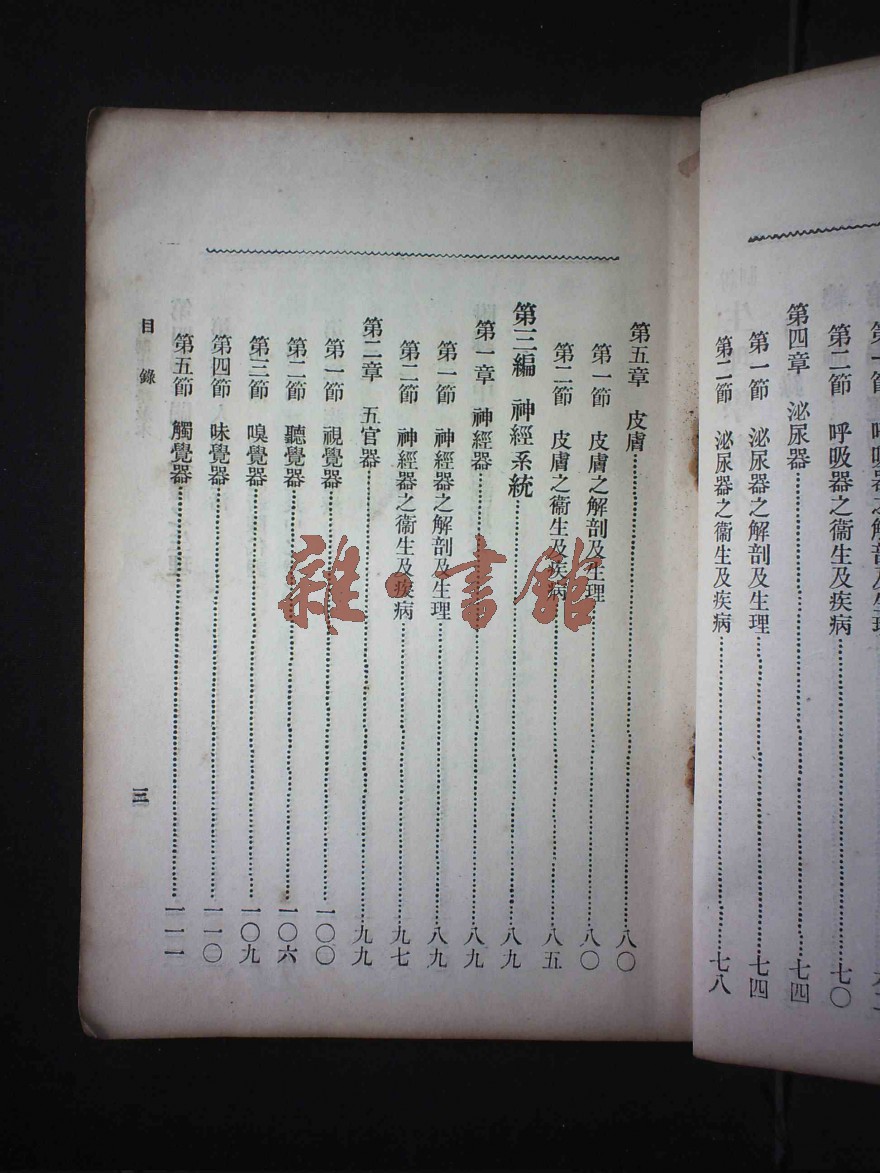 第一節 呼吸器之解剖及生理
第二節 呼吸器之衞生及疾病……七〇
第四章 泌尿器……七四
第一節 泌尿器之解剖及生理……七四
第二節 泌尿器之衞生及疾病……七八
第五章 皮膚……八〇
第一節 皮膚之解剖及生理……八〇
第二節 皮膚之衞生及疾病……八五
第三編 神經系統……八九
第一章 神經器……八九
第一節 神經器之解剖及生理……八九
第二節 神經器之衞生及疾病……九七
第二章 五官器……九九
第一節 視覺器……一〇〇
第二節 聽覺器……一〇六
第三節 嗅覺器……一〇九
第四節 味覺器……一一〇
第五節 觸覺器……一一一
目錄
三
雜·書館